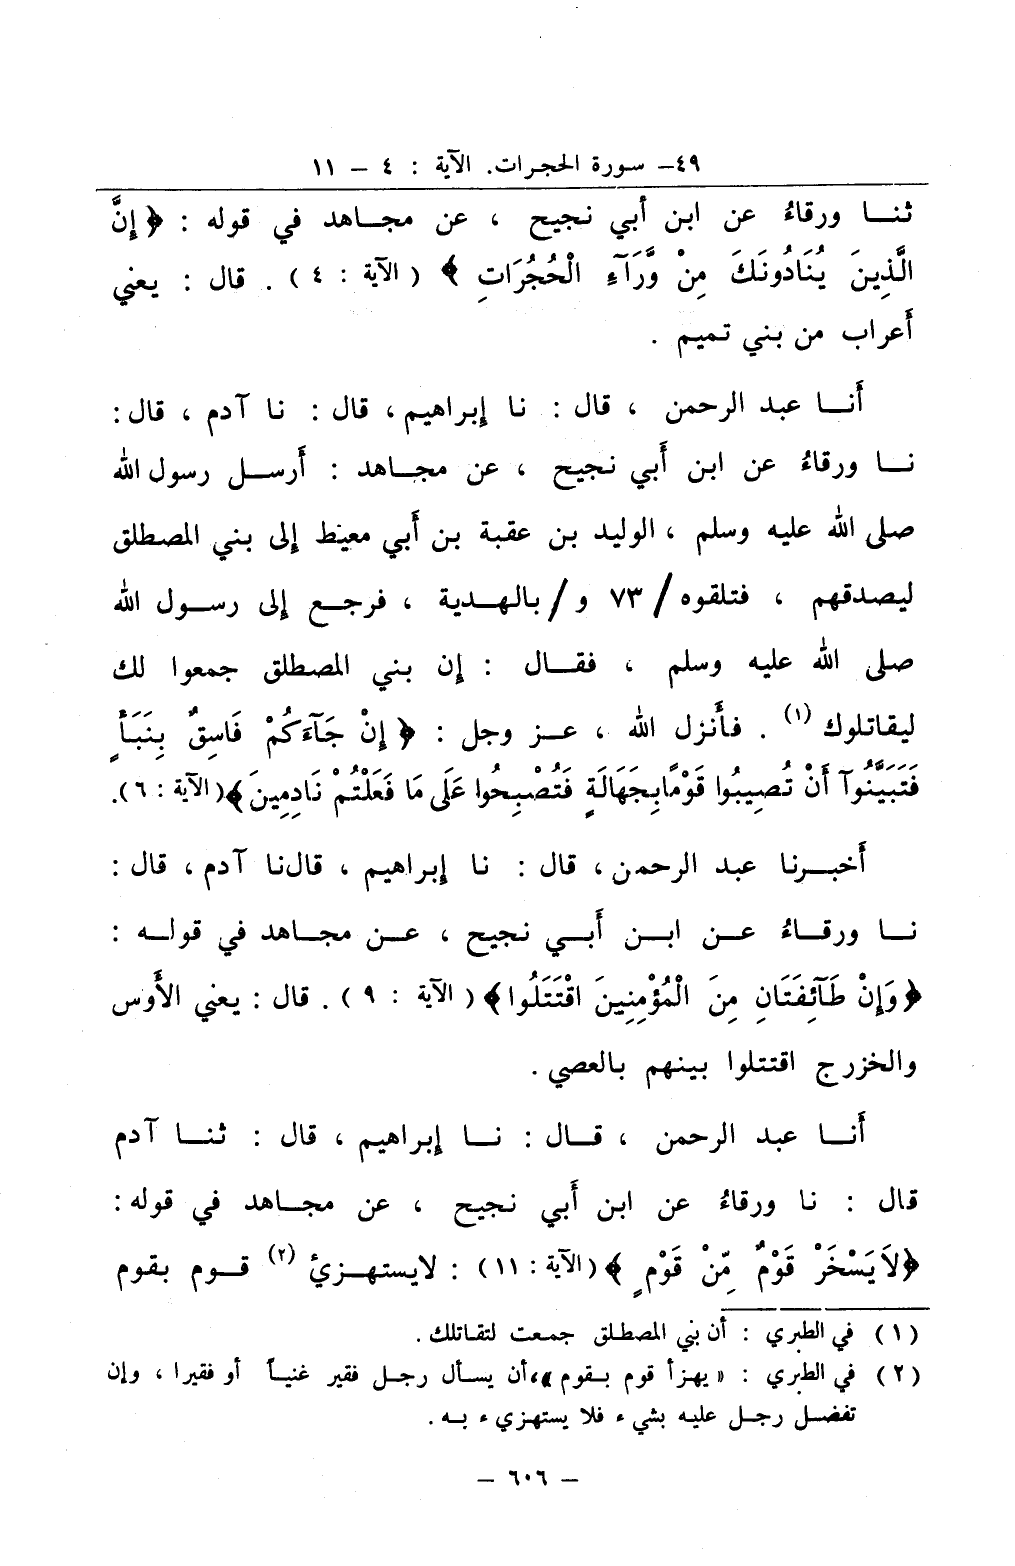 ٤٩– سورة الحجرات. الآية : ٤ – ١١
ثنا ورقاءُ عن ابن أبي نجيح ، عن مجاهد في قوله : ﴿ إِنَّ
الَّذِينَ يُنَادُونَكَ مِنْ وَّرَآءِ الْحُجُرَاتِ ﴾ ( الآية : ٤ ) . قال : يعني
أعراب من بني تميم .
أنا عبد الرحمن ، قال : نا إبراهيم ، قال : نا آدم ، قال :
نا ورقاءُ عن ابن أبي نجيح ، عن مجاهد : أرسل رسول الله
صلى الله عليه وسلم ، الوليد بن عقبة بن أبي معيط إلى بني المصطلق
ليصدقهم ، فتلقوه / ٧٣ و / بالهدية ، فرجع إلى رسول الله
صلى الله عليه وسلم ، فقال : إن بني المصطلق جمعوا لك
ليقاتلوك (١) . فأنزل الله ، عز وجل : ﴿ إِنْ جَآءَكُمْ فَاسِقٌ بِنَبَأٍ
فَتَبَيَّنُوآ أَنْ تُصِيبُوا قَوْمًا بِجَهَالَةٍ فَتُصْبِحُوا عَلَى مَا فَعَلْتُمْ نَادِمِينَ ﴾ ( الآية : ٦ ).
أخبرنا عبد الرحمن ، قال : نا إبراهيم ، قال نا آدم ، قال :
نا ورقاءُ عن ابن أبي نجيح ، عن مجاهد في قوله :
﴿ وَإِنْ طَآئِفَتَانِ مِنَ الْمُؤْمِنِينَ اقْتَتَلُوا ﴾ ( الآية : ٩ ) . قال : يعني الأوس
والخزرج اقتتلوا بينهم بالعصي .
أنا عبد الرحمن ، قال : نا إبراهيم ، قال : ثنا آدم
قال : نا ورقاءُ عن ابن أبي نجيح ، عن مجاهد في قوله :
﴿ لاَ يَسْخَرْ قَوْمٌ مِّنْ قَوْمٍ ﴾ ( الآية : ١١ ) : لايستهزئ (٢) قوم بقوم
(١) في الطبري : أن بني المصطلق جمعت لتقاتلك .
(٢) في الطبري : « يهزأ قوم بقوم »، أن يسأل رجل فقير غنياً أو فقيرا ، وإن
تفضل رجل عليه بشيء فلا يستهزيء به .
– ٦٠٦ –